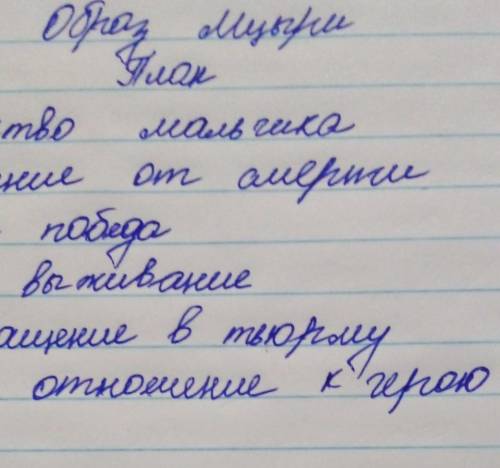 Образ Мцыри
План
тво мальчика
ние от смерти
победа
выживание
ащение в тьюрму
отношение к герою